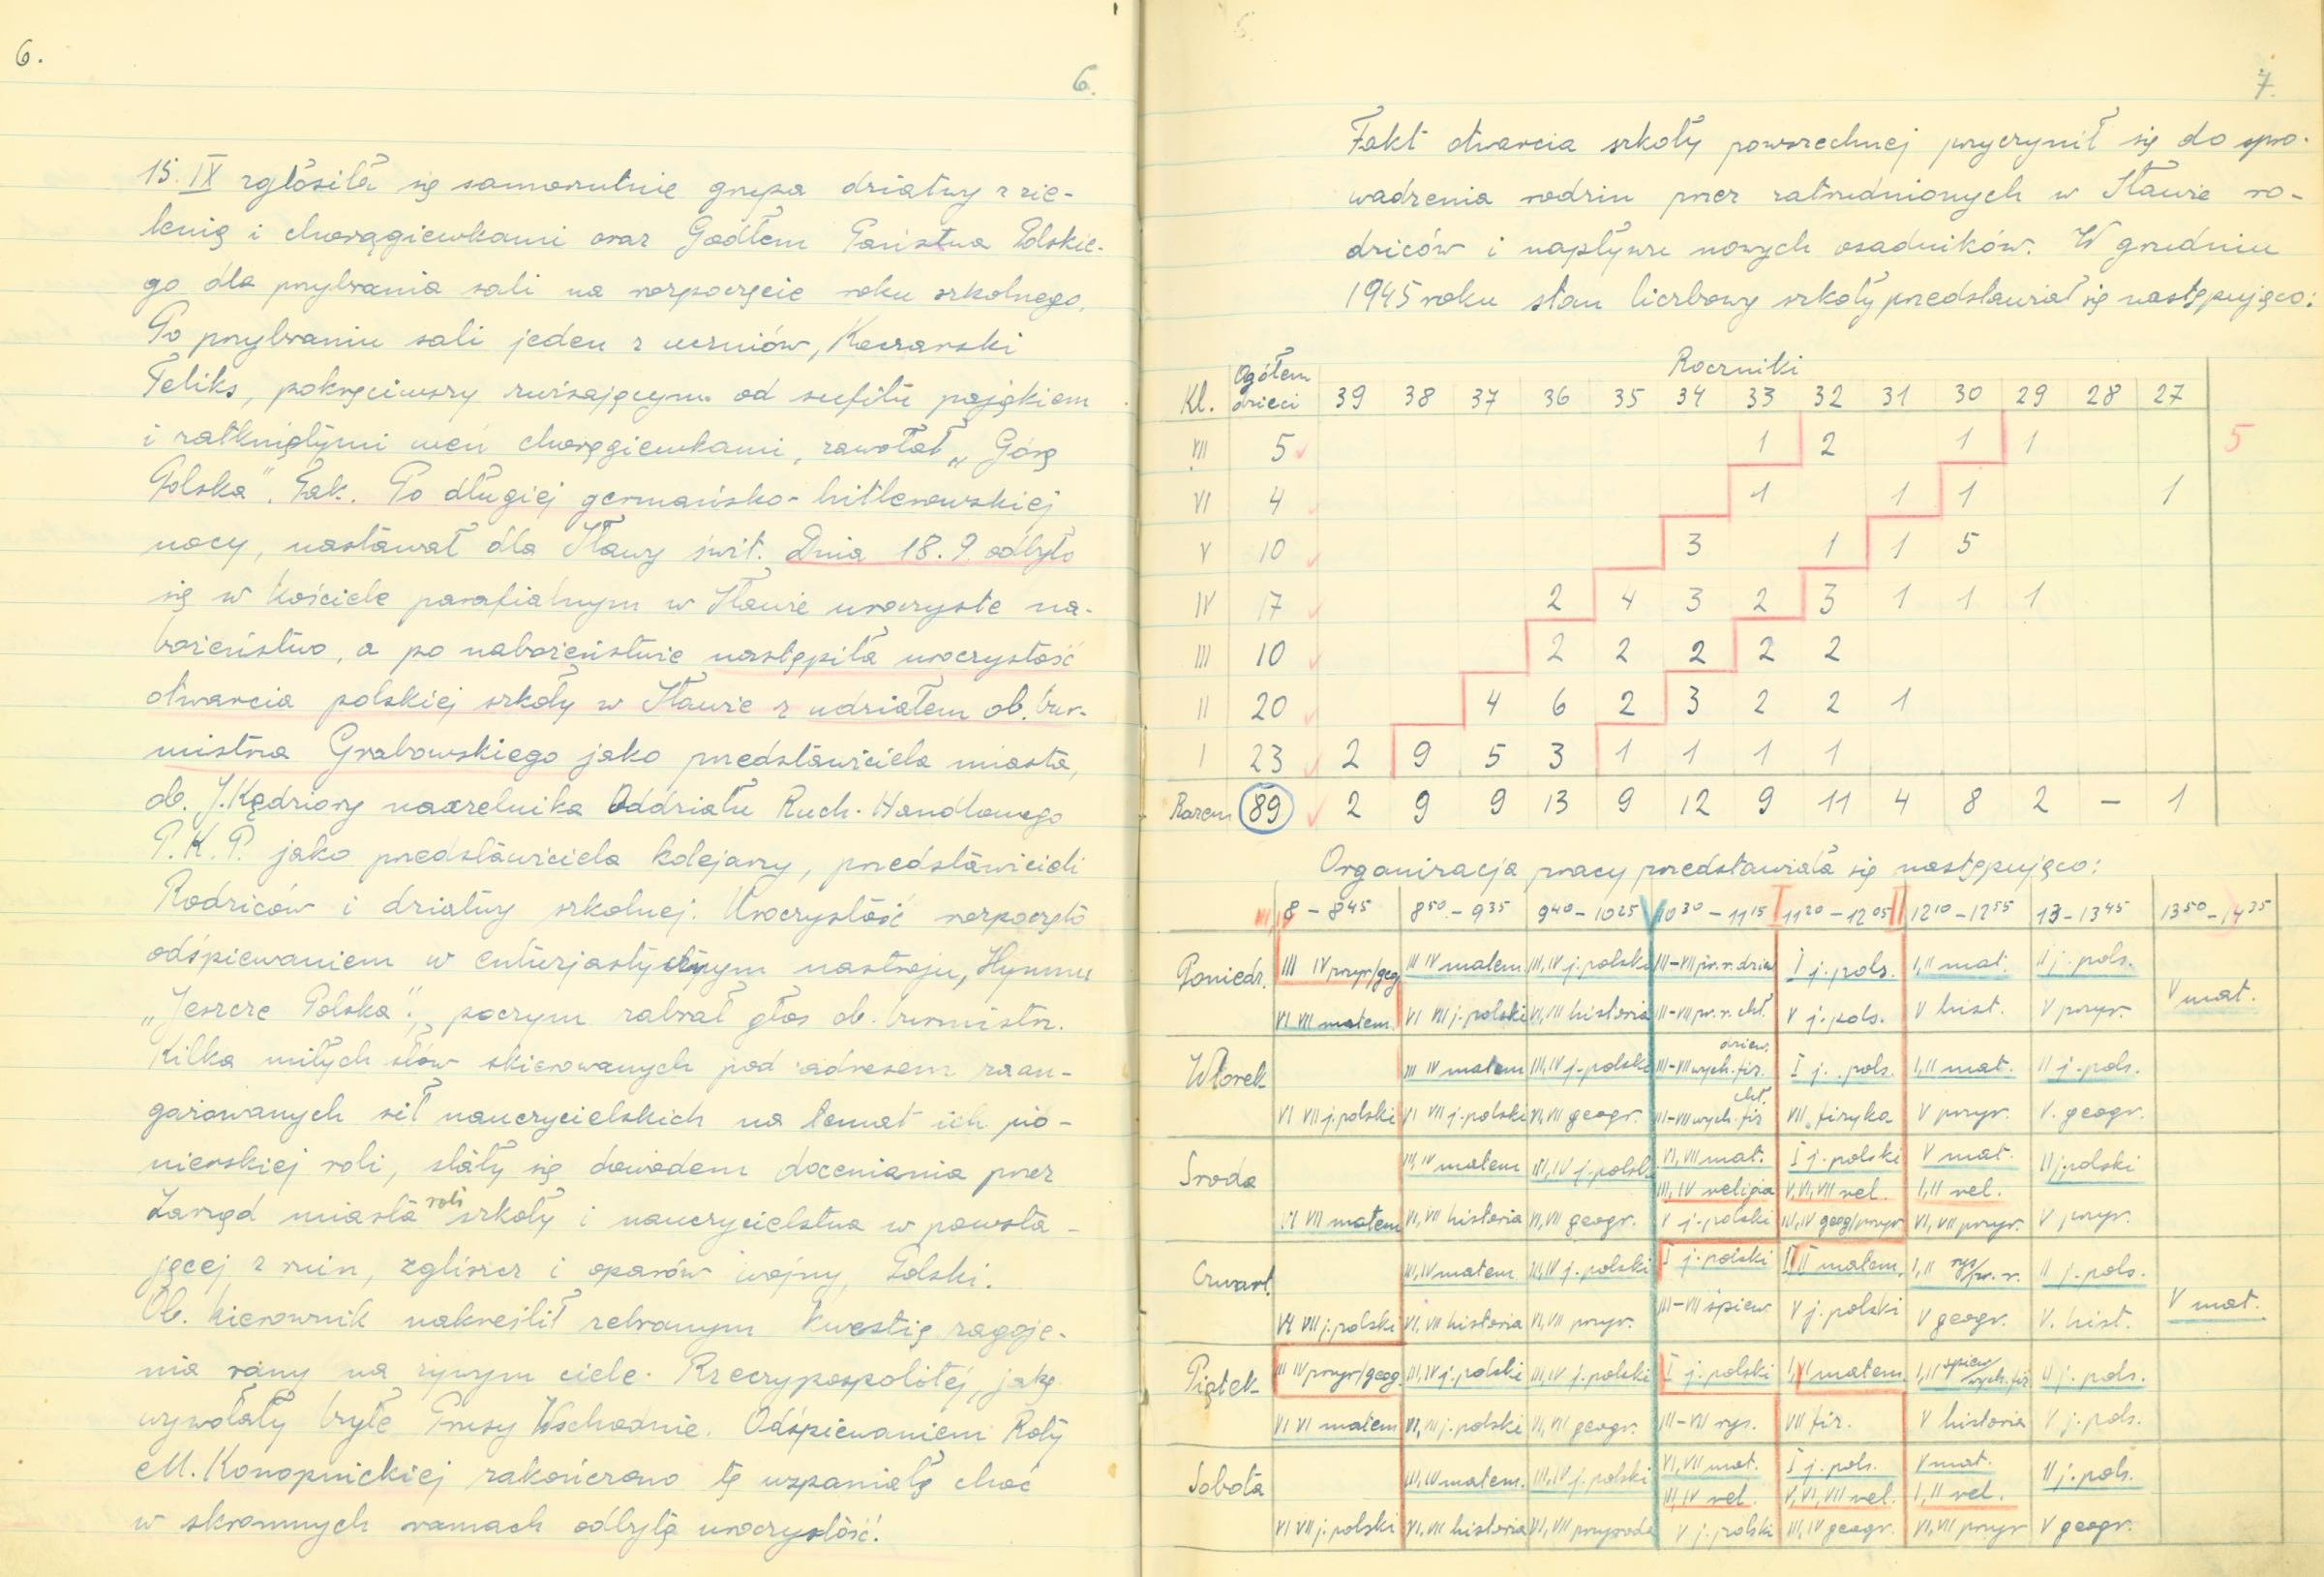 6.
6.
15. IX zgłosiła się samorzutnie grupa dziatwy z zie-
lenią i chorągiewkami oraz Godłem Państwa Polskie-
go dla przybrania sali na rozpoczęcie roku szkolnego.
Po przybraniu sali jeden z uczniów,
Feliks, pokręciwszy zwisającym od sufitu pająkiem
i zatkniętymi weń chorągiewkami, zawołał „Górą
Polska". Tak. Po długiej germańsko-hitlerowskiej
nocy, nastawał dla Iławy świt. Dnia 18.9. odbyło
się w kościele parafialnym w Iławie uroczyste na-
bożeństwo, a po nabożeństwie nastąpiła uroczystość
otwarcia polskiej szkoły w Iławie z udziałem ob. bur-
mistrza Grabowskiego jako przedstawiciela miasta,
ob. J. Kędziory naczelnika Oddziału Ruch.-Handlowego
P.K.P. jako przedstawiciela kolejarzy, przedstawicieli
Rodziców i dziatwy szkolnej. Uroczystość rozpoczęto
odśpiewaniem w entuzjastycznym nastroju, Hymnu
„Jeszcze Polska", poczym zabrał głos ob. burmistrz.
Kilka miłych słów skierowanych pod adresem zaan-
gażowanych sił nauczycielskich na temat ich pio-
nierskiej roli, stały się dowodem doceniania przez
Zarząd miasta roli szkoły i nauczycielstwa w powsta-
jącej z ruin, zgliszcz i oparów wojny, Polski.
Ob. kierownik nakreślił zebranym kwestię zagoje-
nia rany na żywym ciele Rzeczypospolitej, jaką
wywołały byłe Prusy Wschodnie. Odśpiewaniem Roty
M. Konopnickiej zakończono tę wspaniałą choć
w skromnych ramach odbytą uroczystość!
7.
Fakt otwarcia szkoły powszechnej przyczynił się do spro-
wadzenia rodzin przez zatrudnionych w Iławie ro-
dziców i napływu nowych osadników. W grudniu
1945 roku stan liczbowy szkoły przedstawiał się następująco:
Kl. Ogółem dzieci Roczniki
39 38 37 36 35 34 33 32 31 30 29 28 27
VII 5 1 2 1 1 5
VI 4 1 1 1 1
V 10 3 1 1 5
IV 17 2 4 3 2 3 1 1 1
III 10 2 2 2 2 2
II 20 4 6 2 3 2 2 1
I 23 2 9 5 3 1 1 1 1
Razem 89 2 9 9 13 9 12 9 11 4 8 2 — 1
Organizacja pracy przedstawiała się następująco:
8 – 8 45 8 50 – 9 35 9 40 – 10 25 10 30 – 11 15 11 20 – 12 05 12 10 – 12 55 13 – 13 45 13 50 – 14 35
Poniedz. III IV przyr/geog III IV matem. III, IV j. polski III–VII pr. r. dziew I j. pols. I, II mat. II j. pols.
VI VII matem. VI VII j. polski VI, VII historia III–VII pr. r. chł. V j. pols. V hist. V przyr. V mat.
Wtorek III IV matem III, IV j. polski III–VII wych. fiz. dziew. I j. pols. I, II mat. II j. pols.
VI VII j. polski VI VII j. polski VI, VII geogr. III–VII wych. fiz chł. VII fizyka V przyr. V. geogr.
Środa III, IV matem III, IV j. polsk. VI, VII mat. I j. polski V mat. II j. polski
III, IV religia V, VI, VII rel. I, II rel.
VI VII matem VI, VII historia VI, VII geogr. V j. polski III, IV geog/przyr VI, VII przyr. V przyr.
Czwart. III, IV matem III, IV j. polski I j. polski I II matem. I, II rys/pr. r. II j. pols.
VI VII j. polski VI, VII historia VI, VII przyr. III–VII śpiew V j. polski V geogr. V. hist. V mat.
Piątek III IV przyr/geog. III, IV j. polski III, IV j. polski I j. polski I, II matem. I, II śpiew/wych. fiz II j. pols.
VI VI matem VI, VII j. polski VI, VII geogr. III–VII rys. VII fiz. V historia V j. pols.
Sobota III, IV matem. III, IV j. polski VI, VII mat. I j. pols. V mat. II j. pols.
III, IV rel. V, VI, VII rel. I, II rel.
VI VII j. polski VI, VII historia VI, VII przyroda V j. polski III, IV geogr. VI, VII przyr V geogr.